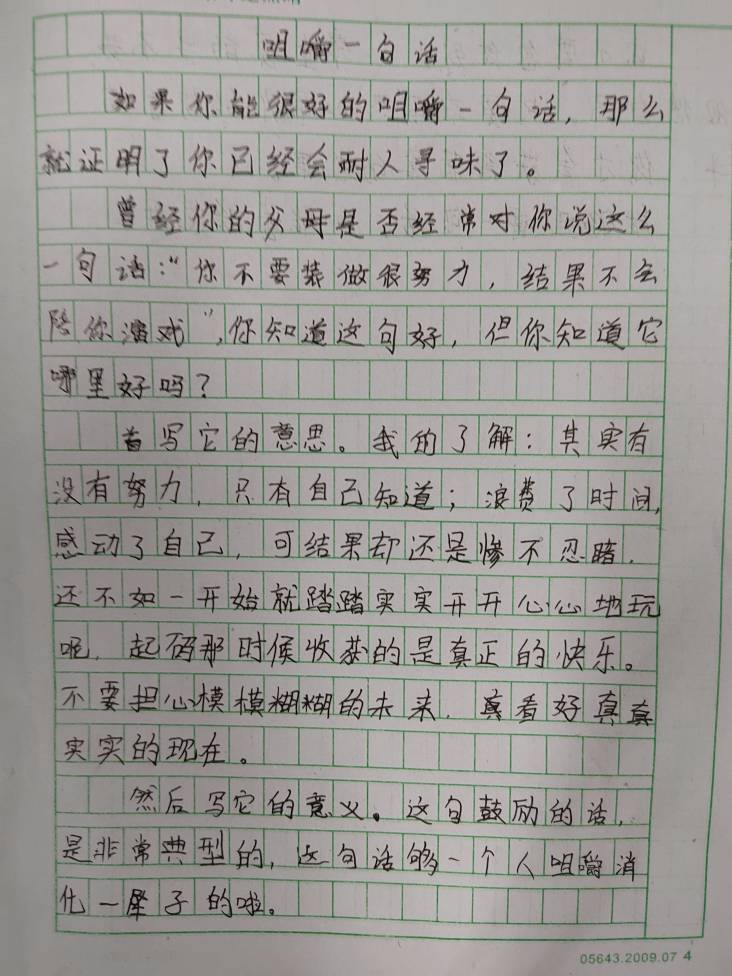 咀嚼一句话
如果你能很好的咀嚼一句话，那么
就证明了你已经会耐人寻味了。
曾经你的父母是否经常对你说这么
一句话：“你不要装做很努力，结果不会
陪你演戏”，你知道这句好，但你知道它
哪里好吗？
首写它的意思。我的了解：其实有
没有努力，只有自己知道；浪费了时间，
感动了自己，可结果却还是惨不忍睹．
还不如一开始就踏踏实实开开心心地玩
呢．起码那时候收获的是真正的快乐。
不要担心模模糊糊的未来．真看好真真
实实的现在。
然后写它的意义。这句鼓励的话，
是非常典型的，这句话够一个人咀嚼消
化一辈子的啦。
05643.2009.07 4